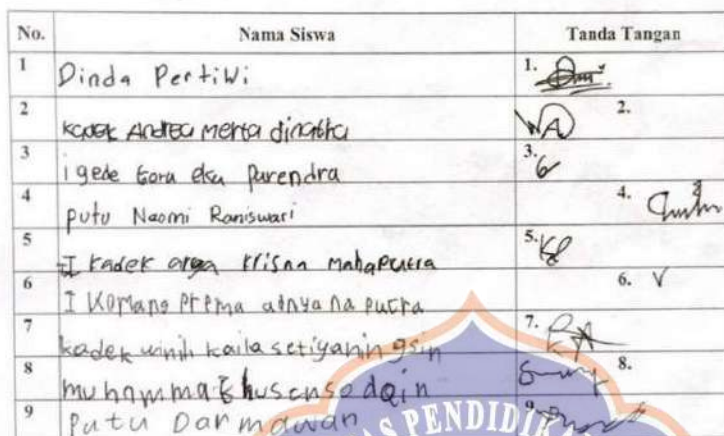 No. Nama Siswa Tanda Tangan
1 Dinda Pertiwi 1.
2 Kadek Andrea Merta dinatha 2.
3 i gede tora eka Parendra 3.
4 putu Naomi Raniswari 4.
5 I kadek arga krisna mahaputra 5.
6 I Komang Prema adnyana putra 6.
7 kadek winih kaila setiyaningsin 7.
8 muhammad husen sodqin 8.
9 Putu Darmawan 9.
AS PENDIDI